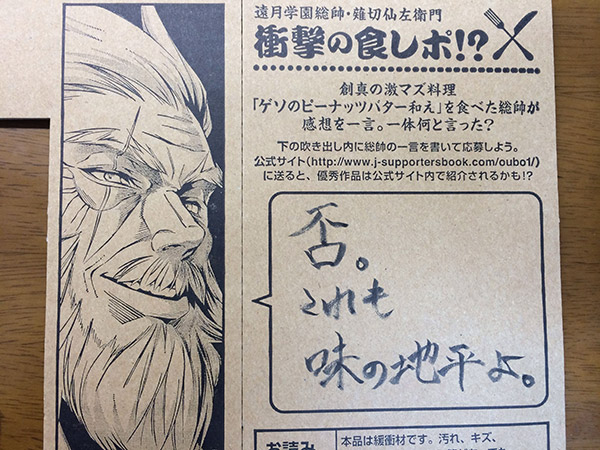 遠月学園総帥・薙切仙左衛門
衝撃の食レポ!?
創真の激マズ料理
「ゲソのピーナッツバター和え」を食べた総帥が
感想を一言。一体何と言った?
下の吹き出し内に総帥の一言を書いて応募しよう。
公式サイト(http://www.j-supportersbook.com/oubo1/)
に送ると、優秀作品は公式サイト内で紹介されるかも!?
否。
これも
味の地平よ。
お読み
本品は緩衝材です。汚れ、キズ、